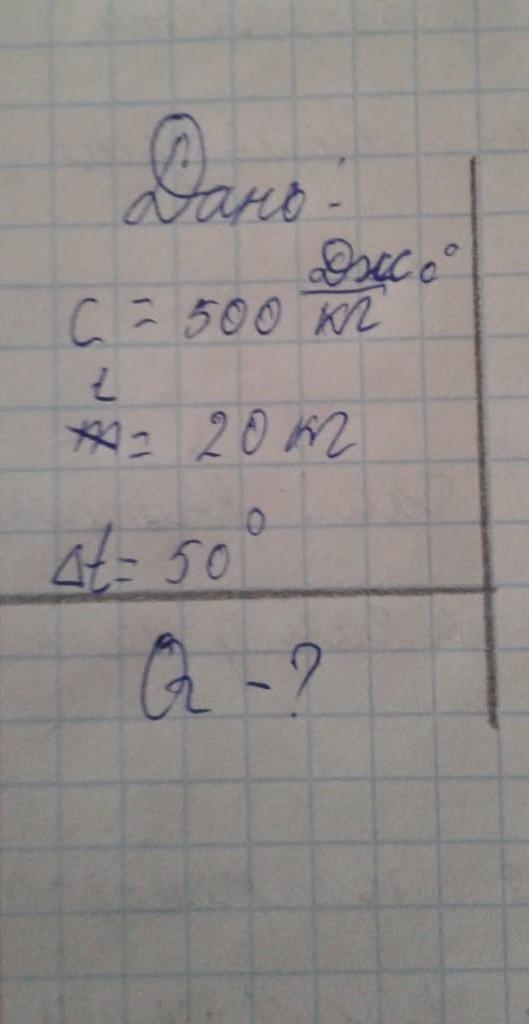 Дано:
c = 500 Дж/кг с°
m = 20 кг
Δt = 50°
Q - ?